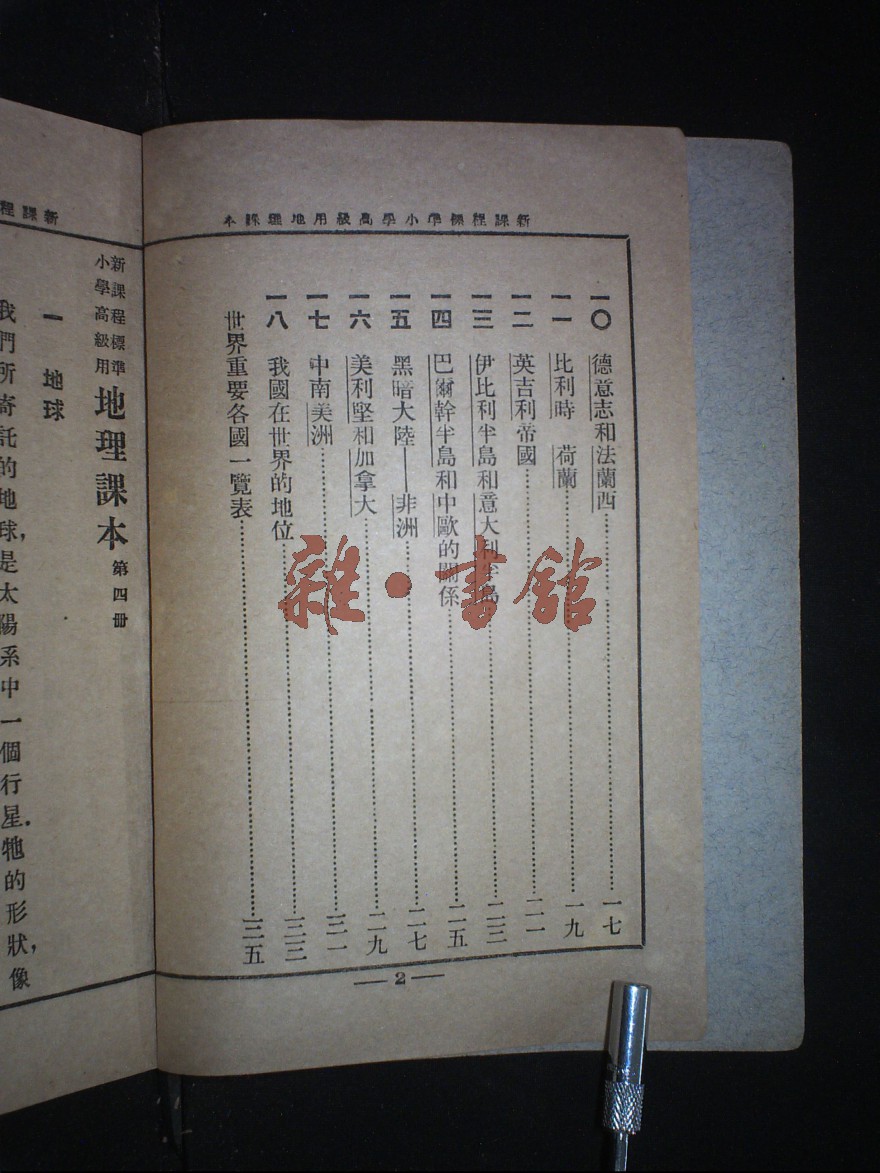 新課程標準小學高級用地理課本
一〇 德意志和法蘭西 一七
一一 比利時 荷蘭 一九
一二 英吉利帝國 二一
一三 伊比利半島和意大利半島 二三
一四 巴爾幹半島和中歐的關係 二五
一五 黑暗大陸——非洲 二七
一六 美利堅和加拿大 二九
一七 中南美洲 三一
一八 我國在世界的地位 三三
世界重要各國一覽表 三五
— 2 —
雜·書館
新課程
新課程標準
小學高級用
地理課本 第四冊
一 地球
我們所寄託的地球,是太陽系中一個行星.牠的形狀,像